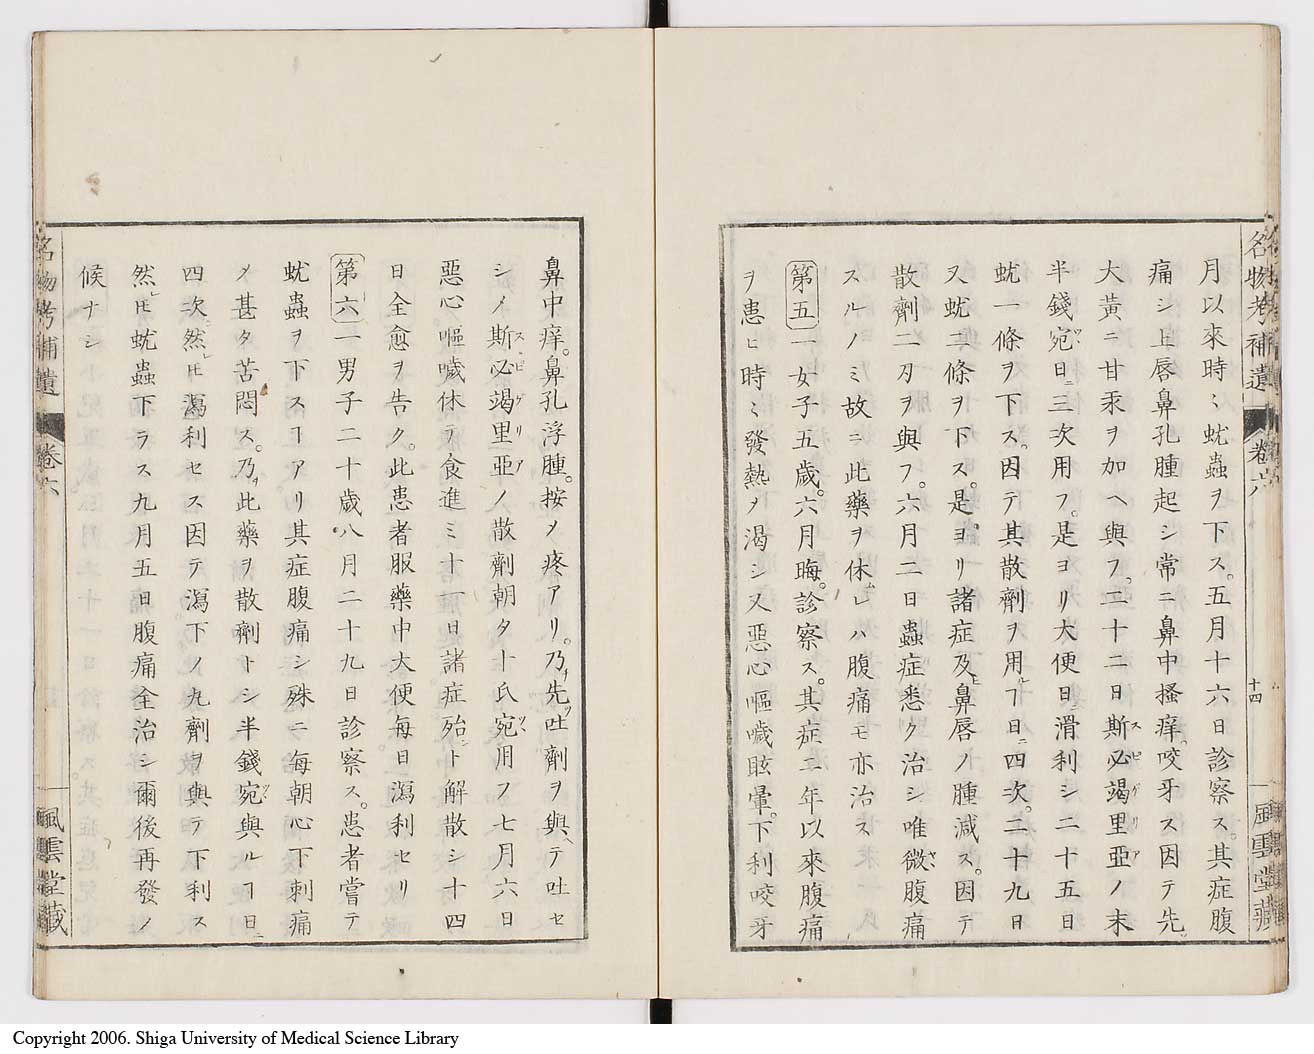 名物考補遺 卷六 十四 風雲堂藏
月以來時〻蚘蟲ヲ下ス。五月十六日診察ス。其症腹
痛シ上唇鼻孔腫起シ常ニ鼻中搔痒。咬牙ス因テ先
大黃ニ甘汞ヲ加ヘ與フ。二十二日斯必竭里亞ノ末
半錢宛日ニ三次用フ。是ヨリ大便日ニ滑利シ二十五日
蚘一條ヲ下ス。因テ其散劑ヲ用ルヿ日ニ四次。二十九日
又蚘二條ヲ下ス。是ヨリ諸症及ヒ鼻唇ノ腫減ス。因テ
散劑二刄ヲ與フ。六月二日蟲症悉ク治シ唯微腹痛
スルノミ故ニ此藥ヲ休ムレハ腹痛モ亦治ス
第五 一女子五歲。六月晦。診察ス。其症二年以來腹痛
ヲ患ヒ時〻發熱ノ渴シ又惡心嘔噦眩暈。下利咬牙
鼻中痒。鼻孔浮腫。按ノ疼アリ。乃チ先ツ吐劑ヲ與ヘテ吐セ
シノ斯必竭里亞ノ散劑朝夕十氏宛ツヽ用フ七月六日
惡心嘔噦休テ食進ミ十一日諸症殆ント解散シ十四
日全愈ヲ告ク。此患者服藥中大便每日瀉利セリ
第六 一男子二十歲八月二十九日診察ス。患者嘗テ
蚘蟲ヲ下スヿアリ其症腹痛シ殊ニ每朝心下刺痛
ノ甚タ苦悶ス。乃チ此藥ヲ散劑トシ半錢宛ツヽ與ルヿ日ニ
四次然レ𪜈瀉利セス因テ瀉下ノ九劑ヲ與テ下利ス
然レ𪜈蚘蟲下ラス九月五日腹痛全治シ爾後再發ノ
候ナシ
名物考補遺 卷六 風雲堂藏
Copyright 2006. Shiga University of Medical Science Library